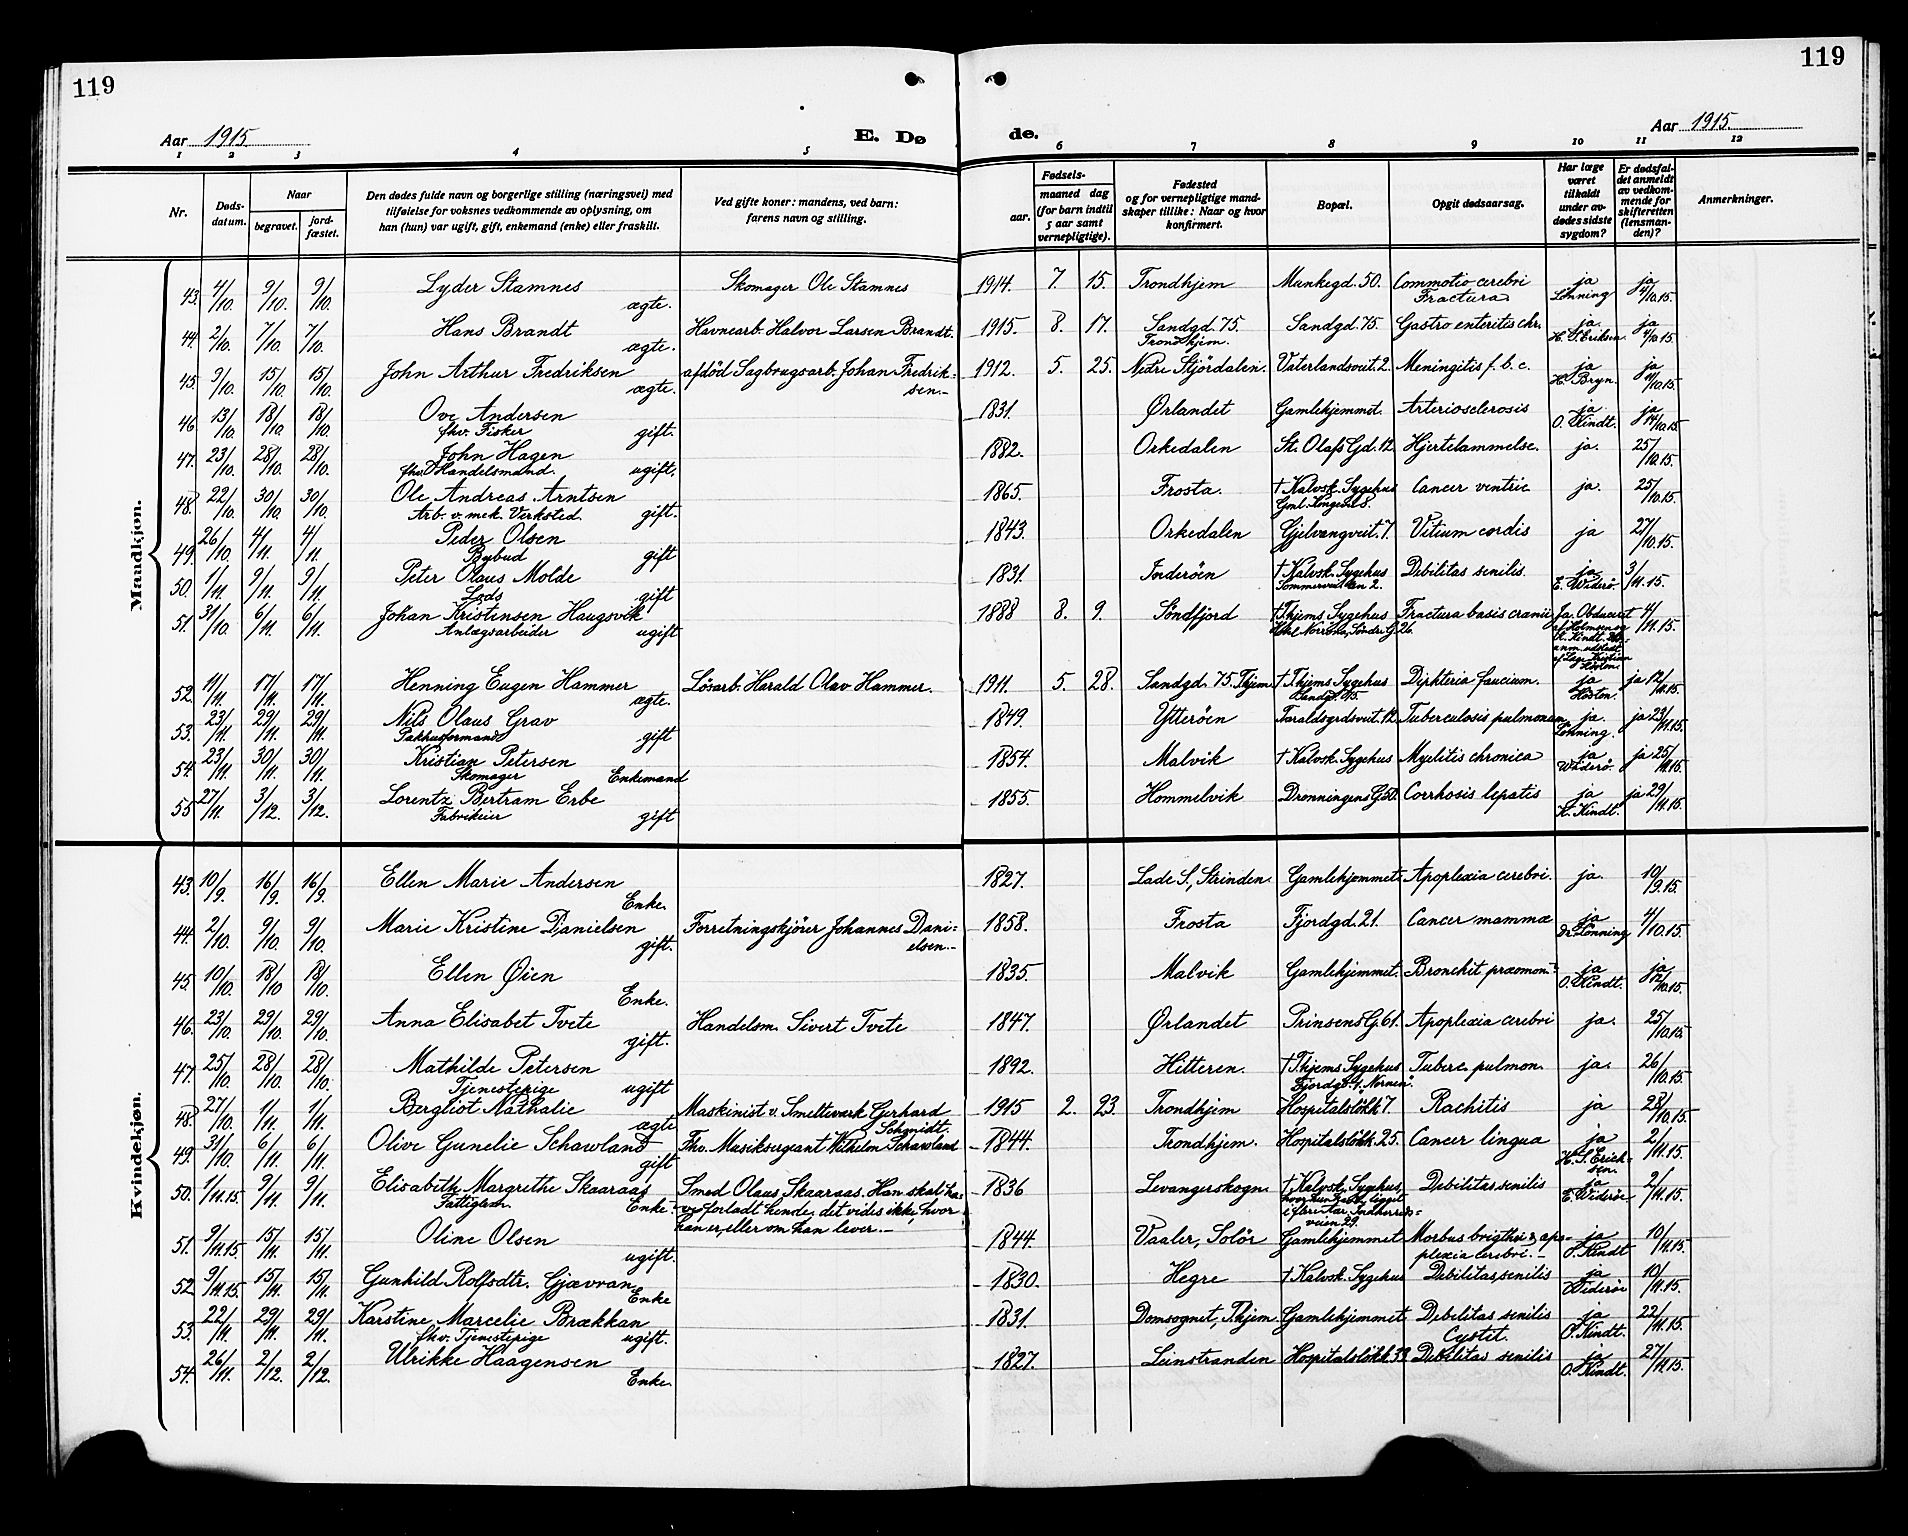 119
119
Aar 1915.
E. Dø
de.
Aar 1915.
1 2 3 4 5 6 7 8 9 10 11 12
Nr.
Døds-datum.
Naar
begravet.
jord-fæstet.
Den dødes fulde navn og borgerlige stilling (næringsvei) med
tilføielse for voksnes vedkommende av oplysning, om
han (hun) var ugift, gift, enkemand (enke) eller fraskilt.
Ved gifte koner: mandens, ved barn:
farens navn og stilling.
Fødsels-
aar.
maaned dag
(for barn indtil
5 aar samt
vernepligtige).
Fødested
og for vernepligtige mand-
skaper tillike: Naar og hvor
konfirmert.
Bopæl.
Opgit dødsaarsag.
Har læge
været
tilkaldt
under av-
dødes sidste
sygdom?
Er dødsfal-
det anmeldt
av vedkom-
mende for
skifteretten
(lensman-
den)?
Anmerkninger.
Mandkjøn.
43. 4/10. 9/10. 9/10. Lyder Stamnes Skomager Ole Stamnes 1914. 7. 15. Trondhjem Munkegd. 50. Commotio cerebri ja ja
ægte. Fractura Lønning 4/10.15.
44. 2/10. 7/10. 7/10. Hans Brandt Havnearb. Halvor Larsen Brandt. 1915. 8. 17. Sandgd. 75. Sandgd. 75. Gastro enteritis chr. ja. ja
ægte. Trondhjem. H. S. Eriksen 4/10.15
45. 9/10. 15/10. 15/10. John Arthur Fredriksen afdød Sagbrugsarb. Johan Fredrik- 1912. 5. 25. Nedre Stjördalen. Vaterlandsveit. 2. Meningitis f. b. c. ja ja
ægte. sen.- H. Bryn. 11/10.15
46. 13/10. 18/10. 18/10. Ove Andersen 1831. Ørlandet Gamlehjemmet. Arteriosclerosis ja ja
fhv. Fisker gift. O. Kindt. 14/10.15
47. 23/10. 28/10. 28/10. John Hagen 1882. Orkedalen St. Olafs Gd. 12. Hjertelammelse. ja. 25/10.15.
fhv. Handelsmand. ugift.
48. 22/10. 30/10. 30/10. Ole Andreas Arntsen 1865. Frosta. † Kalvsk. Sygehus Cancer ventric ja. 25/10.15
Arb. v. mek. Verksted. gift.
49. 26/10. 4/11. 4/11. Peder Olsen 1843. Orkedalen Gjelvangveit. 7. Vitium cordis ja 27/10.15.
Bybud gift
50. 1/11. 9/11. 9/11. Peter Olaus Molde 1831. Inderöen † Kalvsk. Sygehus Debilitas senilis. ja 3/11.15.
Lods gift Sommerveiten 2. E. Widerö.
51. 31/10. 6/11. 6/11. Johan Kristinsen Haugsvik 1888 8. 9. Söndfjord † T.hjems Sygehus Fractura basis cranii Ja. Obduceret 4/11.15.
Anlægsarbeider ugift Söndre G. 26. af Holmsen og
52. 11/11. 17/11. 17/11. Henning Eugen Hammer Lösarb. Harald Olav Hammer. 1911. 5. 28. Sandgd. 75. T.hjem. † T.hjems Sygehus Diphteria faucium. ja ja 12/11.15.
ægte. Sandgd. 75.
53. 23/11. 29/11. 29/11. Nils Olaus Grav 1849. Ytteröen Taraldsgrdsveit. 12. Tuberculosis pulmonum ja. ja 23/11.15.
Pakhusformand gift Lönning.
54. 23/11. 30/11. 30/11. Kristian Petersen 1854. Malvik † Kalvsk. Sygehus Myelitis chronica ja ja 25/11.15.
Skomager Enkemand Widerö.
55 27/11. 3/12. 3/12. Lorentz Bertram Erbe 1855. Hommelvik Dronningens G. 50. Corrhosis lepatis ja ja 29/11.15.
Fabrikeier gift K. Kindt.
Kvindekjøn.
43. 10/9. 16/9. 16/9. Ellen Marie Andersen 1827. Lade S., Strinden. Gamlehjemmet. Apoplexia cerebri. ja. 10/9.15.
Enke.
44. 2/10. 9/10. 9/10. Marie Kristine Danielsen Forretningskjörer Johannes Dani- 1858. Frosta Fjordgd. 21. Cancer mammæ ja 4/10.15.
gift. elsen.- Dr Lönning
45. 10/10. 18/10 18/10. Ellen Øien 1835. Malvik Gamlehjemmet. Bronchit præmon. ja ja
Enke. O. Kindt. 12/10.15.
46. 23/10. 29/10. 29/10. Anna Elisabet Tvete Handelsm. Sivert Tvete 1847. Ørlandet Prinsens G. 61. Apoplexia cerebri ja. 25/10.15
gift.
47. 25/10. 28/10. 28/10. Mathilde Petersen 1892. Hitteren. † T.hjems Sygehus Taberc. pulmon. ja. 26/10.15
Tjenestepige ugift Fjordgd. 1. "Nornen".
48. 27/10. 1/11. 1/11. Bergliot Nathalie Maskinist v. Smelteverk Gerhard 1915 2. 23. Trondhjem Hospitalslökk. 7. Rachitis ja 28/10.15.
ægte Schmidt.
49. 31/10. 6/11. 6/11. Olive Gunelie Schawland Fhv. Musiksergeant Wilhelm Schawland 1844. Trondhjem. Hospitalslökk. 25. Cancer lingua ja 2/11.15.
gift H. S. Erick-sen.
50. 1/11.15 9/11. 9/11. Elisabeth Margrethe Skaaraas Smed Olaus Skaaraas. Han skal ha- 1836 Levangerskogn. † Kalvsk. Sygehus, Debilitas senilis ja 2/11.15.
Fattiglem. Enke. ve forladt hende, det vides ikke, hvor E. Widerö
han er, eller om han lever.- veien 29.
51. 9/11.15 15/11. 15/11. Oline Olsen 1844. Vaaler, Solör Gamlehjemmet Morbus brigthii & apo- ja 10/11.15.
ugift. plexia cerebri.- O. Kindt
52. 9/11.15. 15/11. 15/11. Gunhild Rolfsdtr. Gjævran 1830. Hegre † Kalvsk. Sygehus Debilitas senilis ja 10/11.15.
Enke Widerö
53. 22/11. 29/11. 29/11. Karstine Marcelie Brækkan 1831. Domsognet, T.hjem. Gamlehjemmet Debilitas senilis ja 22/11.15
fhv. Tjenestepige ugift. Cystit. O. Kindt.
54. 26/11. 2/12. 2/12. Ulrikke Haagensen 1827. Leinstranden Hospitalslökk. 33 Debilitas senilis ja 27/11.15.
Enke. O. Kindt.